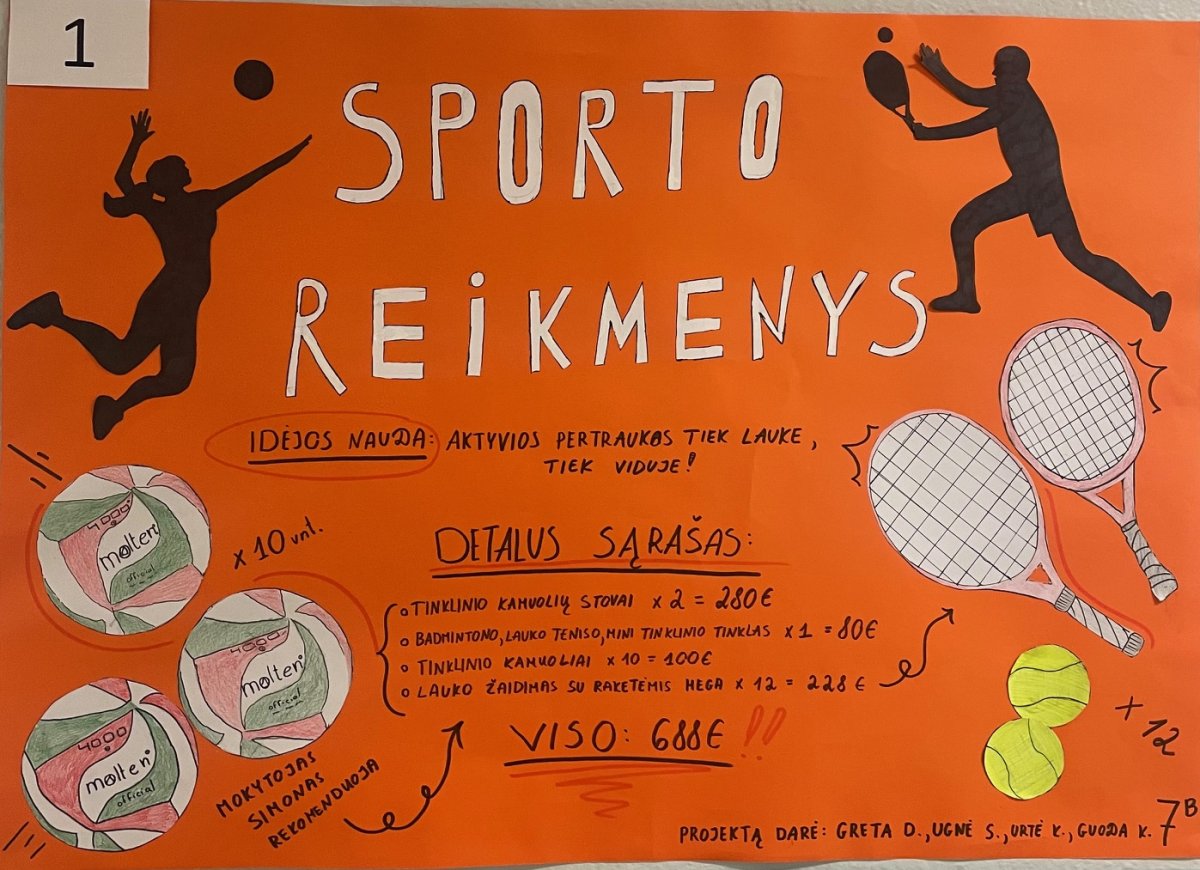 1
SPORTO
REIKMENYS
IDĖJOS NAUDA: AKTYVIOS PERTRAUKOS TIEK LAUKE,
TIEK VIDUJE!
4000
molten
official
x 10 vnt.
4000
molten
official
4000
molten
official
DETALUS SĄRAŠAS:
TINKLINIO KAMUOLIŲ STOVAI x 2 = 280€
BADMINTONO, LAUKO TENISO, MINI TINKLINIO TINKLAS x 1 = 80€
TINKLINIO KAMUOLIAI x 10 = 100€
LAUKO ŽAIDIMAS SU RAKETĖMIS MEGA x 12 = 228€
VISO: 688€!!
MOKYTOJAS
SIMONAS
REKOMENDUOJA
x 12
PROJEKTĄ DARĖ: GRETA D., UGNĖ S., URTĖ K., GUODA K. 7B